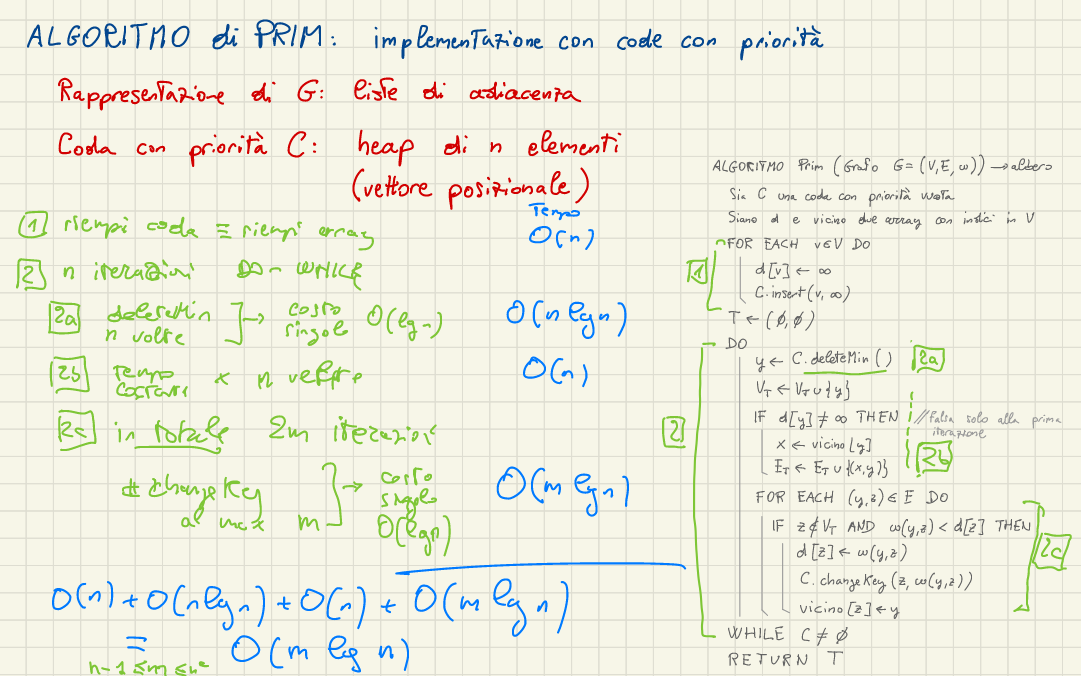 ALGORITMO di PRIM: implementazione con code con priorità
Rappresentazione di G: liste di adiacenza
Coda con priorità C: heap di n elementi
(vettore posizionale)
Tempo
1 riempi coda ≡ riempi array O(n)
2 n iterazioni DO-WHILE
2a deleteMin n volte → costo singolo O(lg n) O(n lg n)
2b tempo costante × n volte O(n)
2c in totale 2m iterazioni
# changeKey al max m → costo singolo O(lg n) O(m lg n)
O(n) + O(n lg n) + O(n) + O(m lg n)
= O(m lg n)
n-1 ≤ m ≤ n²
ALGORITMO Prim (Grafo G = (V, E, ω)) → albero
Sia C una coda con priorità vuota
Siano d e vicino due array con indici in V
1 FOR EACH v ∈ V DO
d[v] ← ∞
C.insert(v, ∞)
T ← (∅, ∅)
2 DO
y ← C.deleteMin() 2a
V_T ← V_T ∪ {y}
IF d[y] ≠ ∞ THEN //falsa solo alla prima iterazione
x ← vicino[y]
E_T ← E_T ∪ {(x,y)} 2b
FOR EACH (y,z) ∈ E DO
IF z ∉ V_T AND ω(y,z) < d[z] THEN
d[z] ← ω(y,z) 2c
C.changeKey(z, ω(y,z))
vicino[z] ← y
WHILE C ≠ ∅
RETURN T